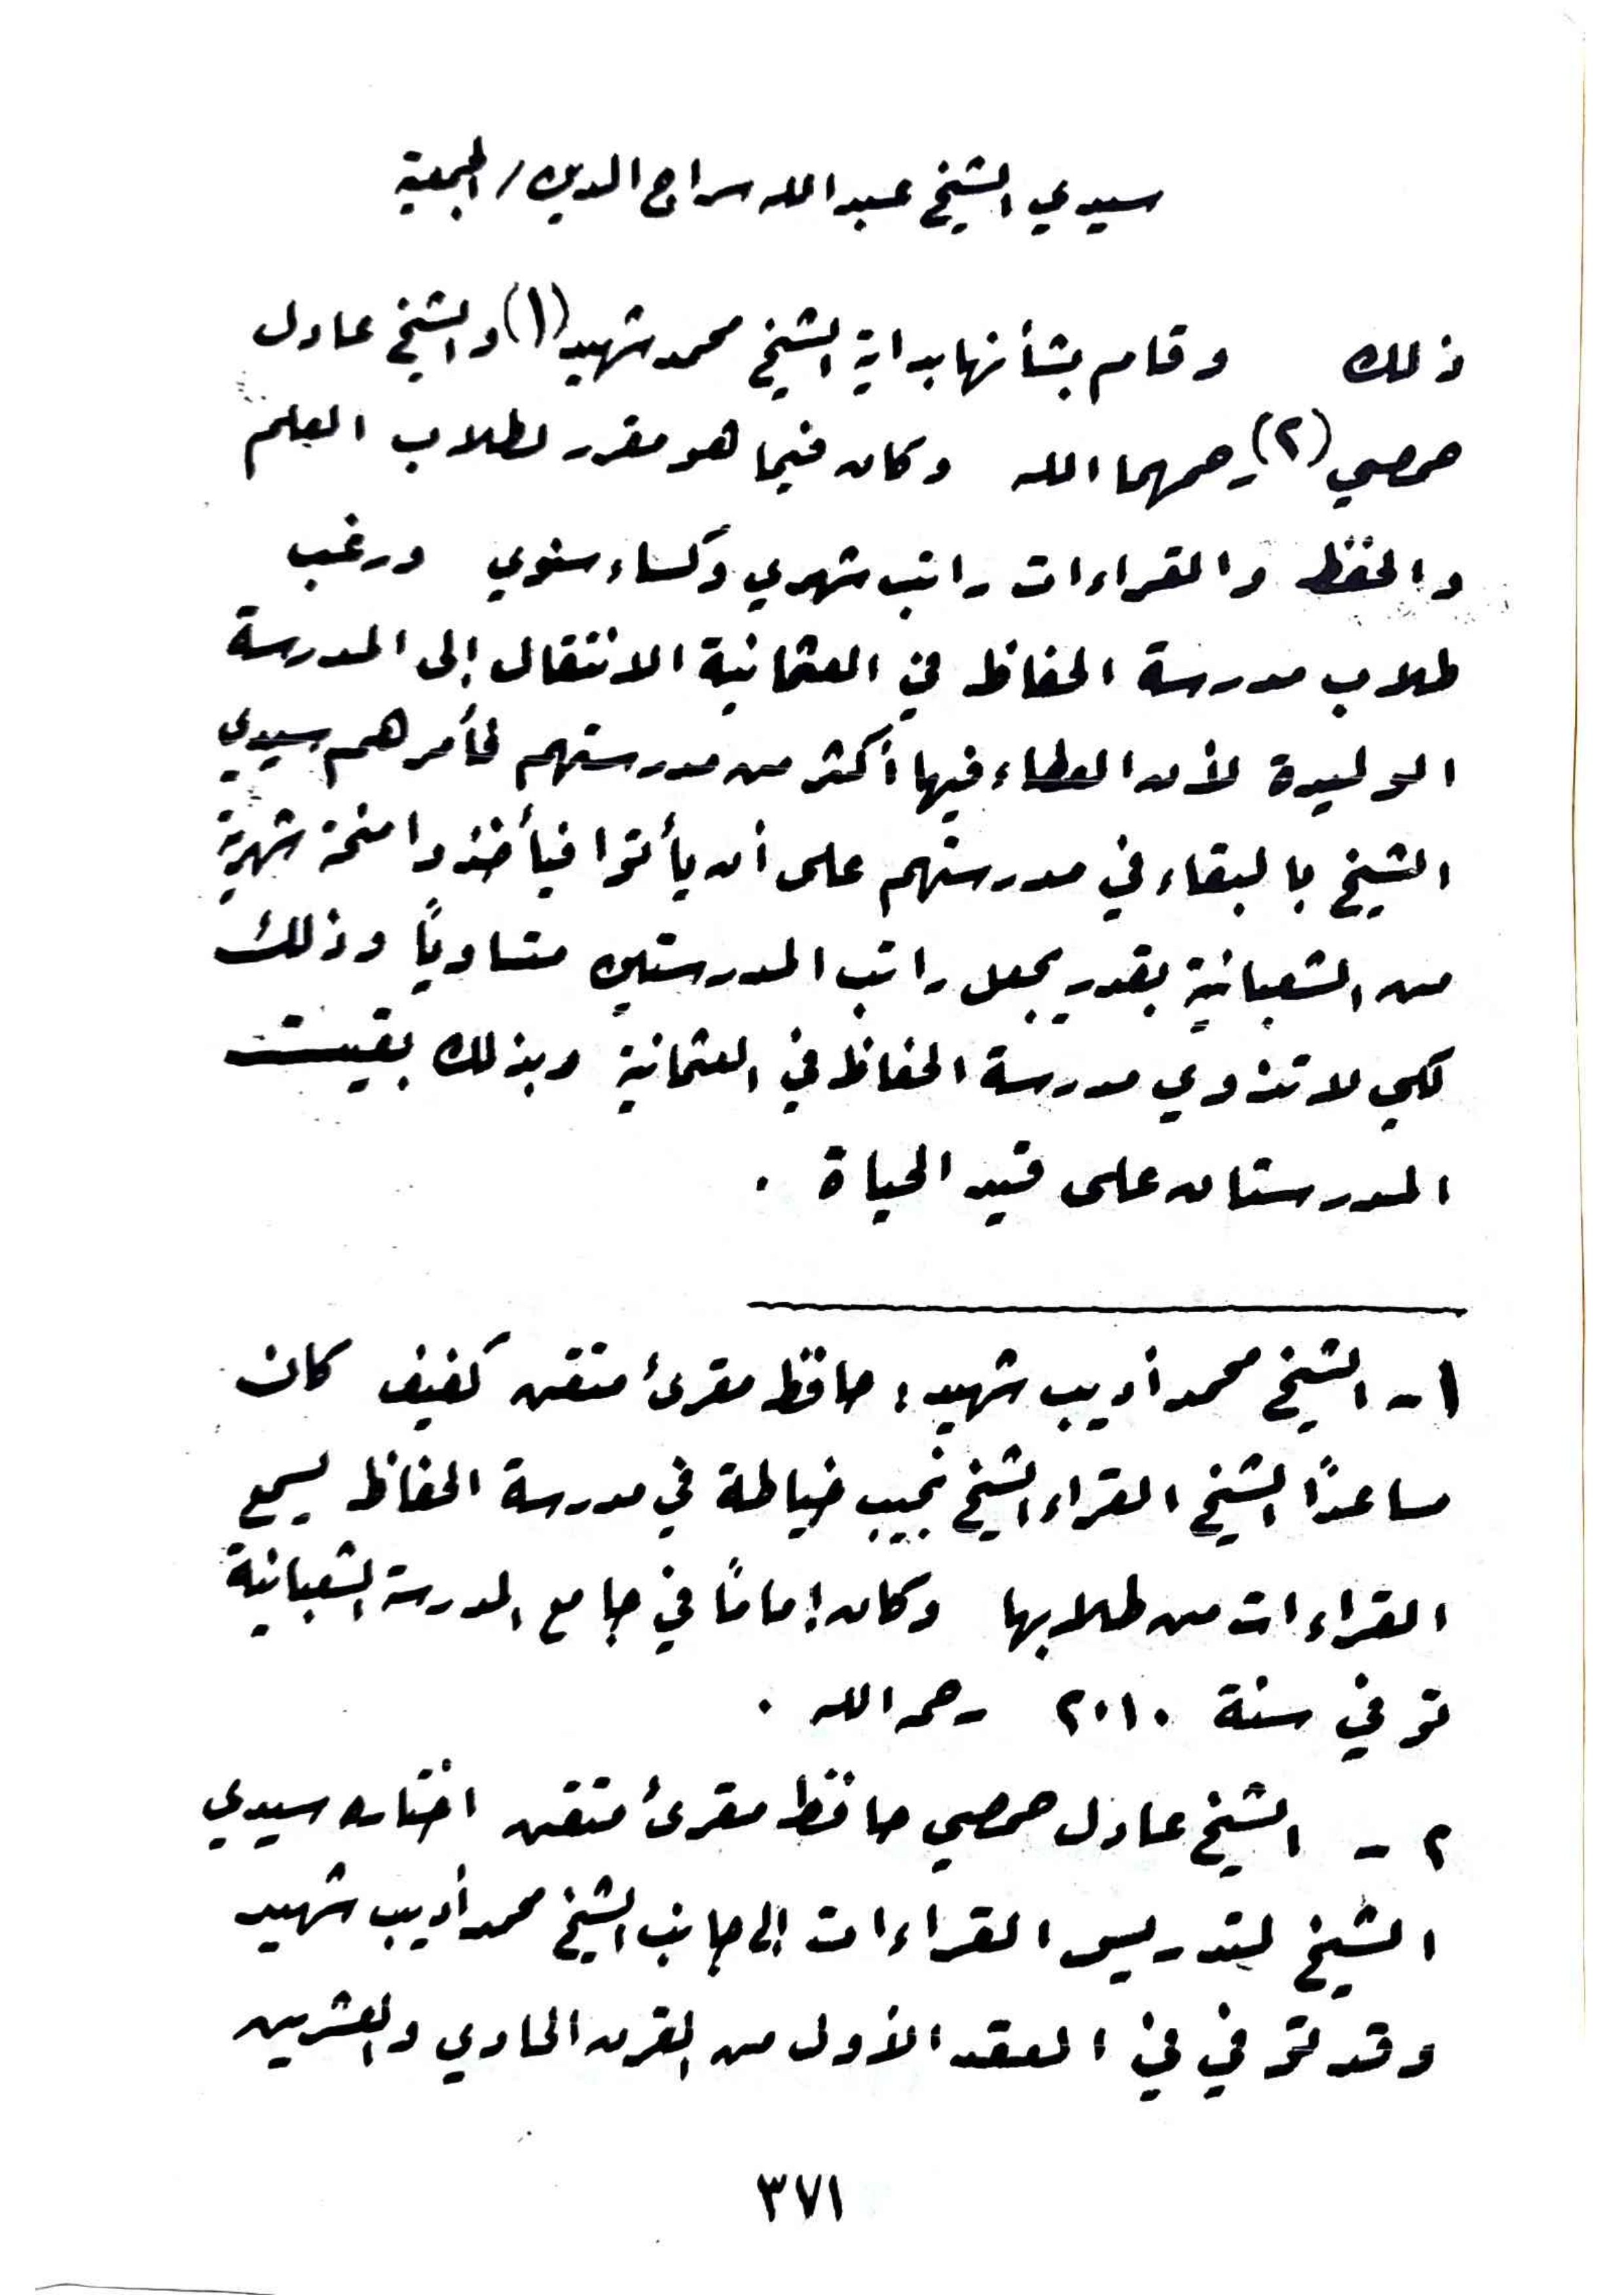 سيدي الشيخ عبد الله سراج الدين / الجمعية
ذلك وقام بشأنها بداية الشيخ محمد شهيد (١) والشيخ عادل
حمصي (٢) رحمهما الله وكان فيما هو مقرر لطلاب العلم
والحفظ والقراءات راتب شهري وكساء سنوي ورغب
طلاب مدرسة الحفاظ في العثمانية الانتقال إلى المدرسة
الوليدة لأن العطاء فيها أكثر من مدرستهم فأمرهم سيدي
الشيخ بالبقاء في مدرستهم على أن يأتوا فيأخذوا منحة شهرية
من الشعبانية بقدر يجعل راتب المدرستين متساوياً وذلك
لكي لا تذوي مدرسة الحفاظ في العثمانية وبذلك بقيت
المدرستان على قيد الحياة .
١ - الشيخ محمد أديب شهيد : حافظ مقرئ متقن كفيف كان
مساعداً لشيخ القراء الشيخ نجيب خياطة في مدرسة الحفاظ يسمع
القراءات من طلابها وكان إماماً في جامع المدرسة الشعبانية
توفي سنة ٢٠١٠ رحمه الله .
٢ - الشيخ عادل حمصي حافظ مقرئ متقن اختاره سيدي
الشيخ لتدريس القراءات إلى جانب الشيخ محمد أديب شهيد
وقد توفي في العقد الأول من القرن الحادي والعشرين
٣٧١